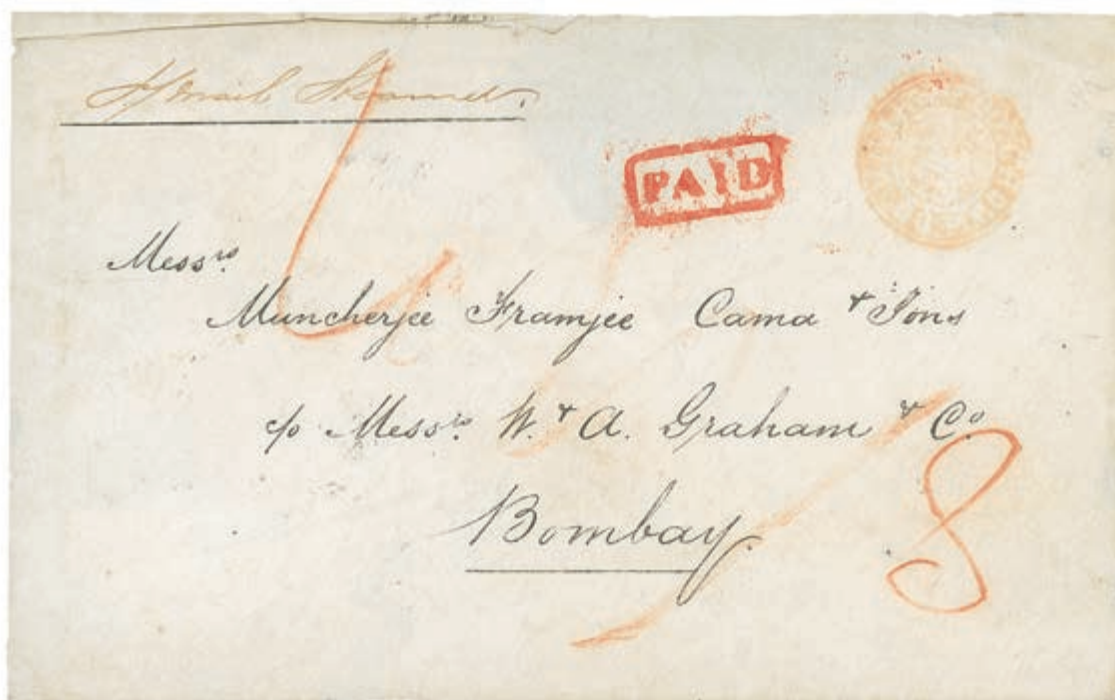 p mail Steamer.
PAID
Messrs.
Muncherjee Framjee Cama & Sons
c/o Messrs. W. & A. Graham & Co.
Bombay.
8